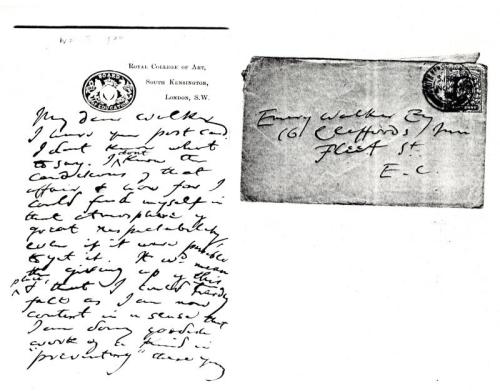 Royal College of Art,
South Kensington,
London, S.W.
BOARD
EDUCATION
My dear Walker
I have your post card.
I dont know what
to say. I dont know the
conditions of that
affair & how far I
could find myself in
that atmosphere of
great respectability,
even if it were possible
to get it. It wd. mean
the giving up of this
place & that I could hardly
face as I am now
content in a sense that
I am doing goodish
work of a kind in
"preventing" these young
Emery Walker Esq
16 Cliffords Inn
Fleet St.
E.C.